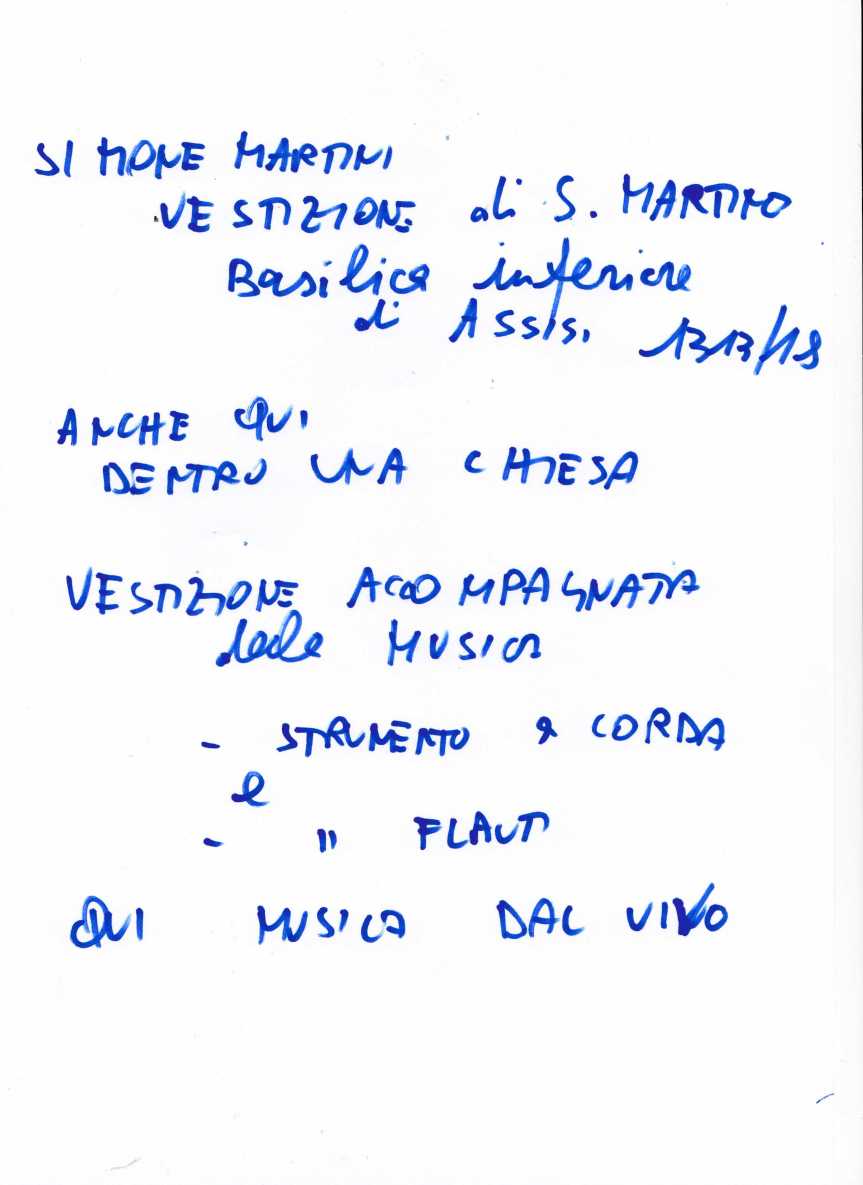 SIMONE MARTINI
VESTIZIONE di S. MARTINO
Basilica inferiore
di ASSISI 1313/18
ANCHE QUI
DENTRO UNA CHIESA
VESTIZIONE ACCOMPAGNATA
dalla MUSICA
- STRUMENTO a CORDA
e
- " FLAUTI
QUI MUSICA DAL VIVO